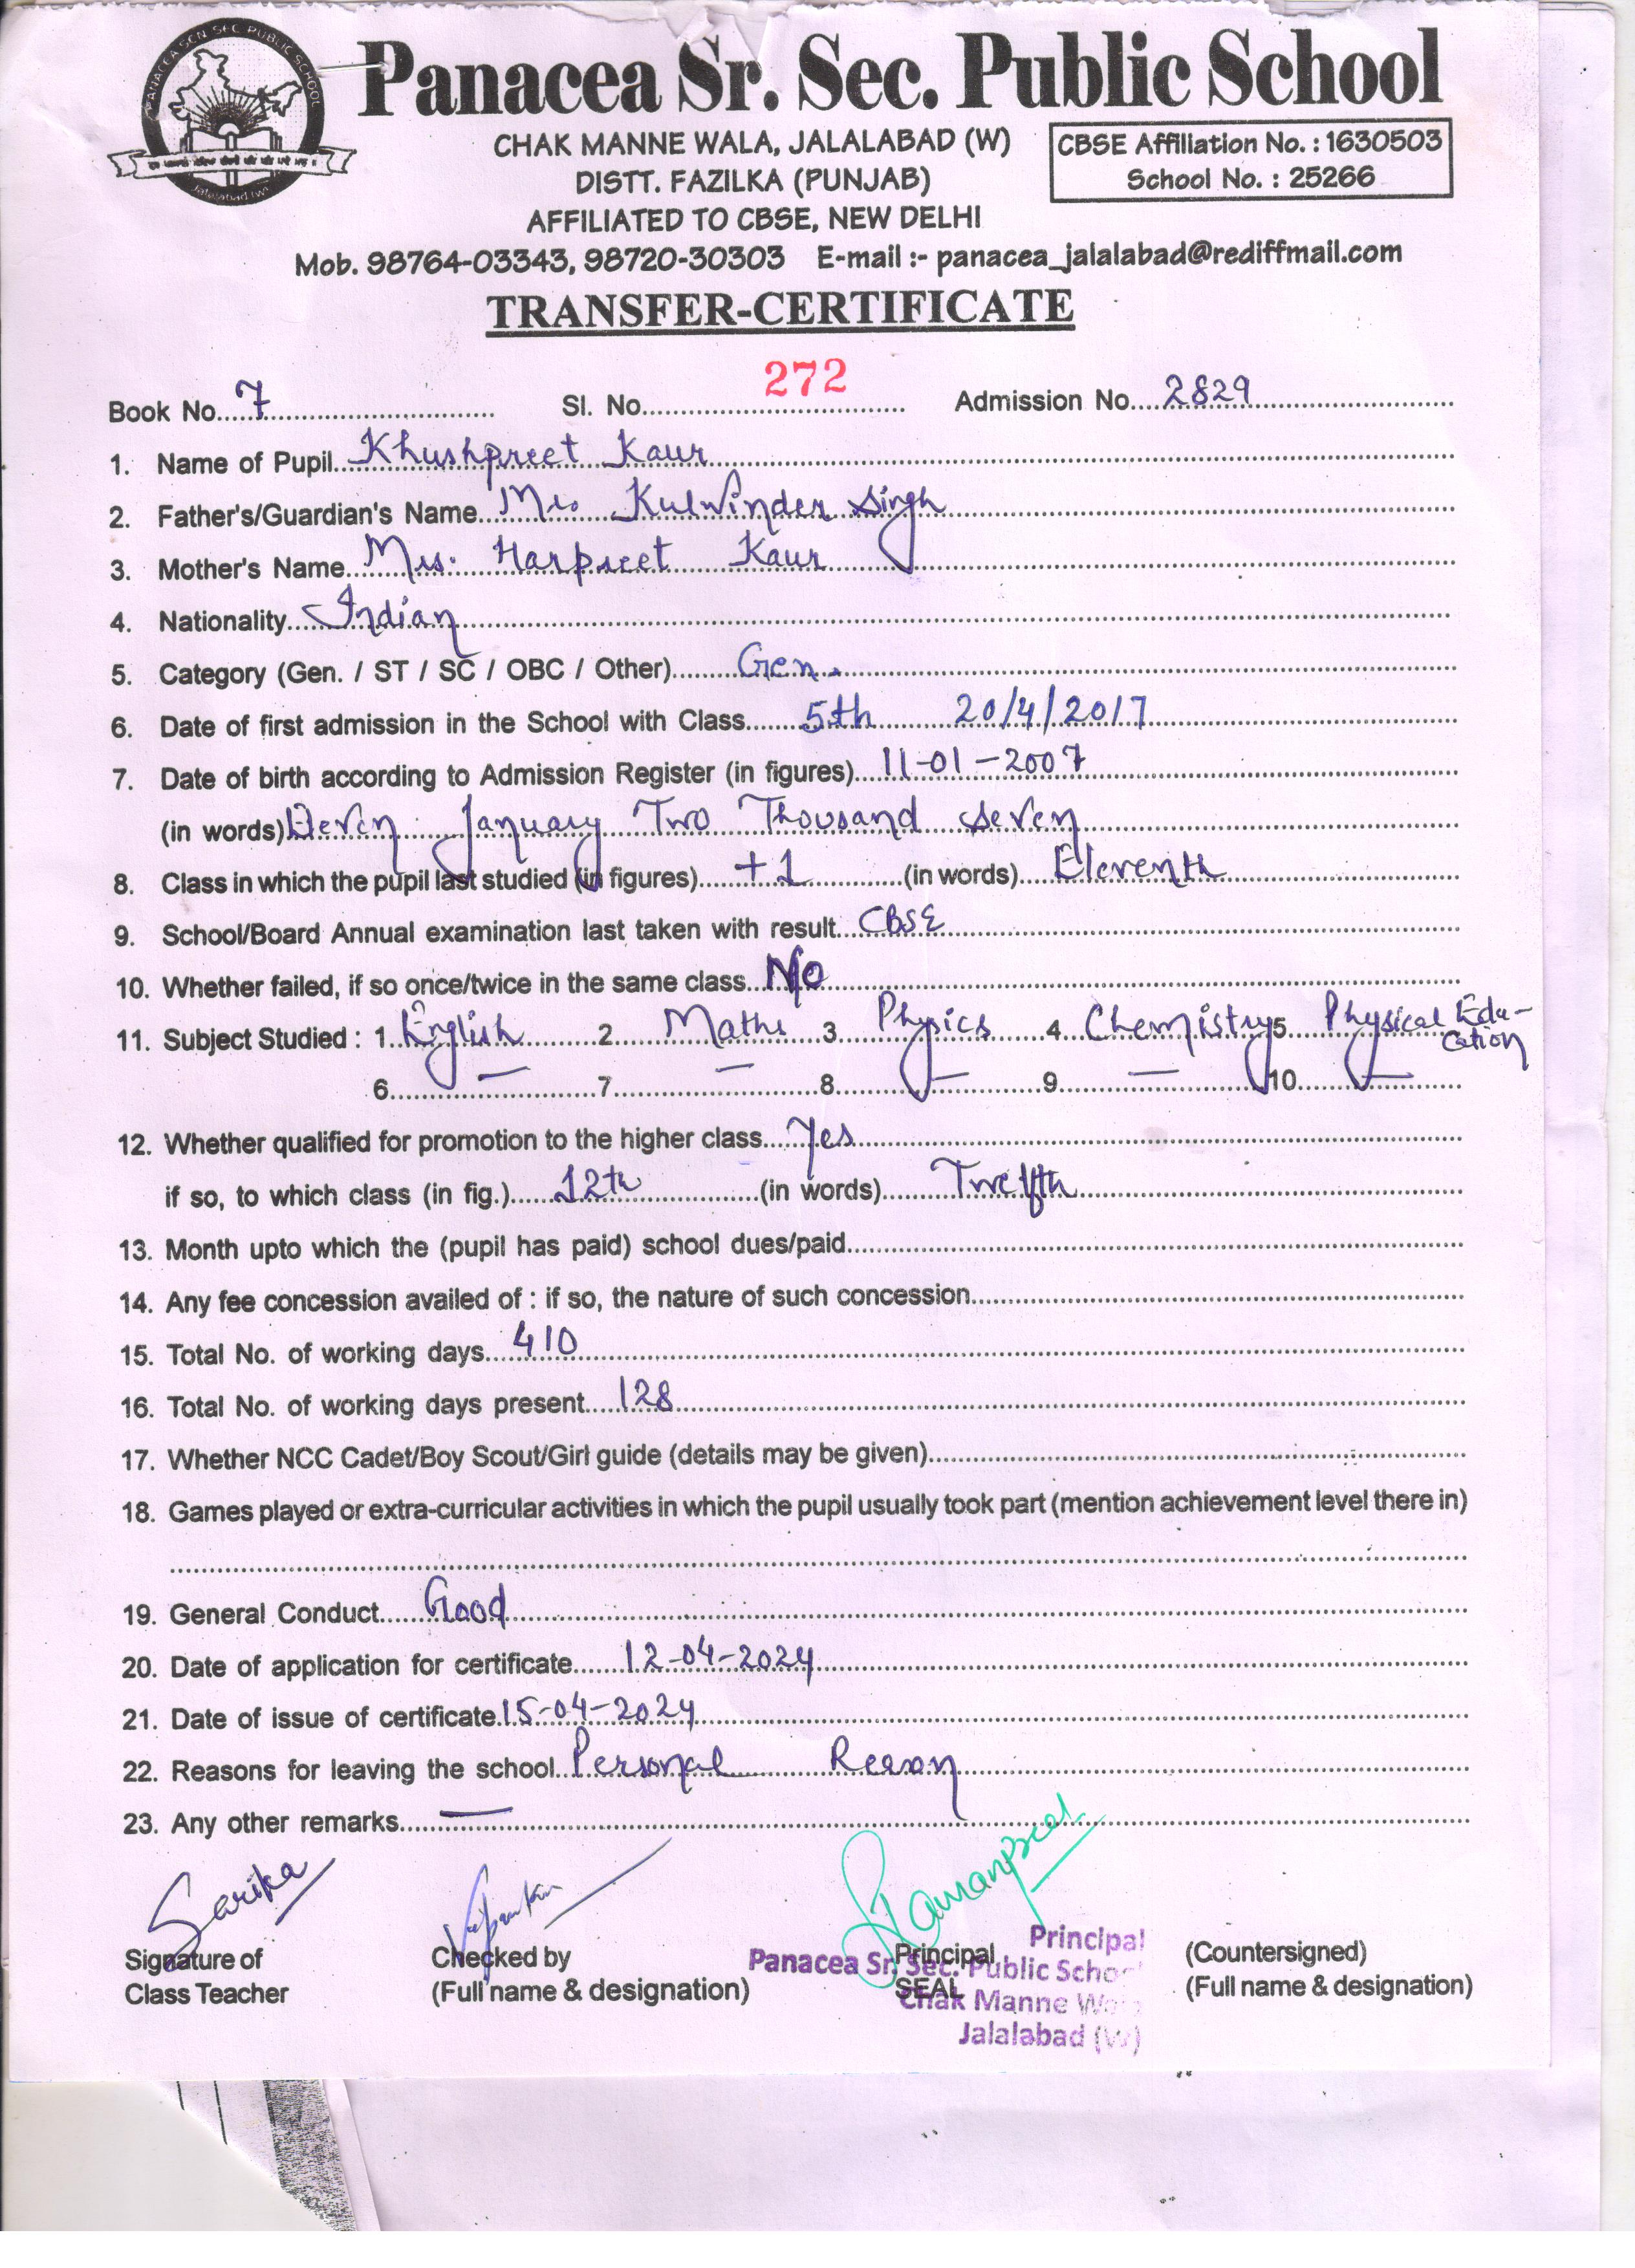 PANACEA SEN SEC PUBLIC SCHOOL
Jalalabad (W)
Panacea Sr. Sec. Public School
CHAK MANNE WALA, JALALABAD (W)
DISTT. FAZILKA (PUNJAB)
AFFILIATED TO CBSE, NEW DELHI
CBSE Affiliation No. : 1630503
School No. : 25266
Mob. 98764-03343, 98720-30303 E-mail :- panacea_jalalabad@rediffmail.com
TRANSFER-CERTIFICATE
Book No. 7 Sl. No. 272 Admission No. 2829
1. Name of Pupil Khushpreet Kaur
2. Father's/Guardian's Name Mr. Kulwinder Singh
3. Mother's Name Mrs. Harpreet Kaur
4. Nationality Indian
5. Category (Gen. / ST / SC / OBC / Other) Gen.
6. Date of first admission in the School with Class 5th 20/4/2017
7. Date of birth according to Admission Register (in figures) 11-01-2007
(in words) Eleven January Two Thousand Seven
8. Class in which the pupil last studied (in figures) +1 (in words) Eleventh
9. School/Board Annual examination last taken with result CBSE
10. Whether failed, if so once/twice in the same class No
11. Subject Studied : 1. English 2 Maths 3 Physics 4 Chemistry 5 Physical Edu-
cation
6 — 7 — 8 — 9 — 10 —
12. Whether qualified for promotion to the higher class Yes
if so, to which class (in fig.) 12th (in words) Twelfth
13. Month upto which the (pupil has paid) school dues/paid
14. Any fee concession availed of : if so, the nature of such concession
15. Total No. of working days 410
16. Total No. of working days present 128
17. Whether NCC Cadet/Boy Scout/Girl guide (details may be given)
18. Games played or extra-curricular activities in which the pupil usually took part (mention achievement level there in)
19. General Conduct Good
20. Date of application for certificate 12-04-2024
21. Date of issue of certificate 15-04-2024
22. Reasons for leaving the school Personal Reason
23. Any other remarks —
Sarika
Signature of
Class Teacher
Checked by
(Full name & designation)
Ramanpreet
Principal
SEAL
Principal
Panacea Sr. Sec. Public School
Chak Manne Wala
Jalalabad (W)
(Countersigned)
(Full name & designation)